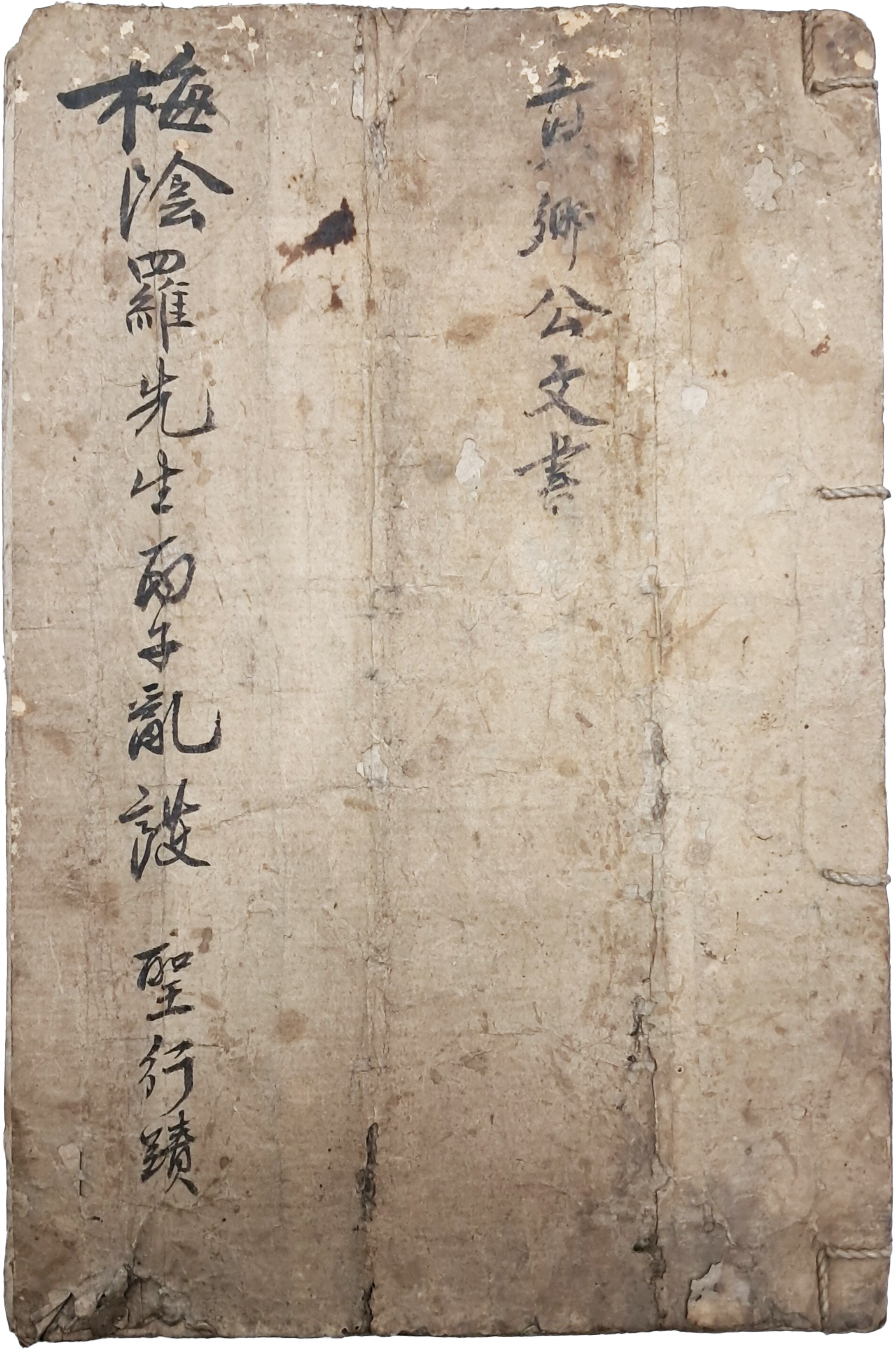 京鄕公文書
梅陰羅先生丙子亂護 聖行蹟